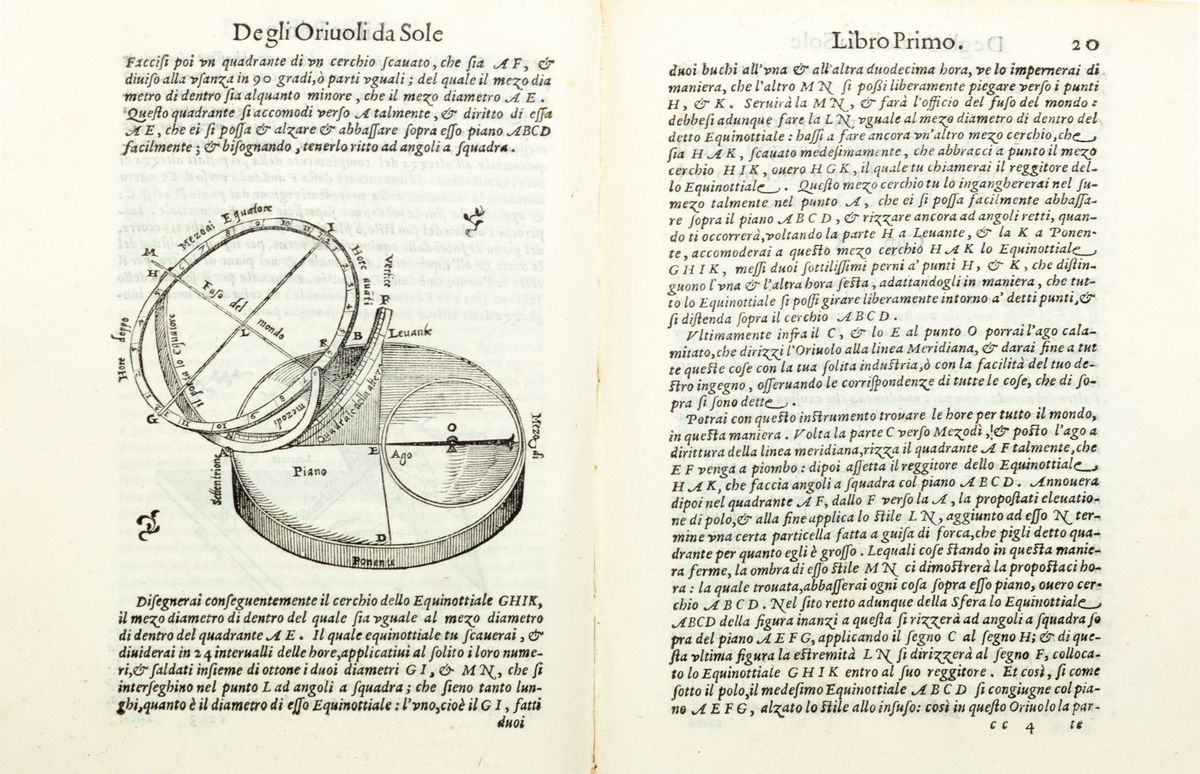 Degli Oriuoli da Sole
Faccisi poi vn quadrante di vn cerchio scauato, che sia A F, &
diuiso alla vsanza in 90 gradi, ò parti vguali; del quale il mezo dia
metro di dentro sia alquanto minore, che il mezo diametro A E.
Questo quadrante si accomodi verso A talmente, & diritto di essa
A E, che ei si possa & alzare & abbassare sopra esso piano ABCD
facilmente; & bisognando, tenerlo ritto ad angoli a squadra.
Mezodi Equatore
M
H
I
Hore auāti
Vertice
F
Fuso del mondo
L
Hore doppo
Il porta lo Equatore
B
Leuante
K
G
mezodi
Quadrante della altezza
A
E
Ago
O
Mezo di
Piano
Settentrione
D
Ponente
Disegnerai conseguentemente il cerchio dello Equinottiale GHIK,
il mezo diametro di dentro del quale sia vguale al mezo diametro
di dentro del quadrante A E. Il quale equinottiale tu scauerai, &
diuiderai in 24 interualli delle hore, applicatiui al solito i loro nume-
ri, & saldati insieme di ottone i duoi diametri G I, & M N, che si
interseghino nel punto L ad angoli a squadra; che sieno tanto lun-
ghi, quanto è il diametro di esso Equinottiale: l'vno, cioè il G I, fatti
duoi
Libro Primo. 20
duoi buchi all'vna & all'altra duodecima hora, ve lo impernerai di
maniera, che l'altro M N si possi liberamente piegare verso i punti
H, & K. Seruirà la M N, & farà l'officio del fuso del mondo:
debbesi adunque fare la L N vguale al mezo diametro di dentro del
detto Equinottiale: hassi a fare ancora vn'altro mezo cerchio, che
sia H A K, scauato medesimamente, che abbracci a punto il mezo
cerchio H I K, ouero H G K, il quale tu chiamerai il reggitore del-
lo Equinottiale. Questo mezo cerchio tu lo inganghererai nel su-
mezo talmente nel punto A, che ei si possa facilmente abbassa-
re sopra il piano A B C D, & rizzare ancora ad angoli retti, quan-
do ti occorrerà, voltando la parte H a Leuante, & la K a Ponen-
te, accomoderai a questo mezo cerchio H A K lo Equinottiale
G H I K, messi duoi sottilissimi perni a' punti H, & K, che distin-
guono l'vna & l'altra hora sesta, adattandogli in maniera, che tut-
to lo Equinottiale si possi girare liberamente intorno a' detti punti, &
si distenda sopra il cerchio A B C D.
Vltimamente infra il C, & lo E al punto O porrai l'ago cala-
mitato, che dirizzi l'Oriuolo alla linea Meridiana, & darai fine a tut
te queste cose con la tua solita industria, ò con la facilità del tuo de-
stro ingegno, osseruando le corrispondenze di tutte le cose, che di so-
pra si sono dette.
Potrai con questo instramento trouare le hore per tutto il mondo,
in questa maniera. Volta la parte C verso Mezodì, & posto l'ago a
dirittura della linea meridiana, rizza il quadrante A F talmente, che
E F venga a piombo: dipoi assetta il reggitore dello Equinottiale
H A K, che faccia angoli a squadra col piano A B C D. Annouera
dipoi nel quadrante A F, dallo F verso la A, la propostati eleuatio-
ne di polo, & alla fine applica lo stile L N, aggiunto ad esso N ter-
mine vna certa particella fatta a guisa di forca, che pigli detto qua-
drante per quanto egli è grosso. Lequali cose stando in questa manie-
ra ferme, la ombra di esso stile M N ci dimostrerà la propostaci ho-
ra: la quale trouata, abbasserai ogni cosa sopra esso piano, ouero cer-
chio A B C D. Nel sito retto adunque della Sfera lo Equinottiale
ABCD della figura inanzi a questa si rizzerà ad angoli a squadra so
pra del piano A E F G, applicando il segno C al segno H; & di que-
sta vltima figura la estremità L N si dirizzerà al segno F, colloca-
to lo Equinottiale G H I K entro al suo reggitore. Et così, si come
sotto il polo, il medesimo Equinottiale A B C D si congiugne col pia-
no A E F G, alzato lo stile allo insuso: così in questo Oriuolo la par-
cc 4 te